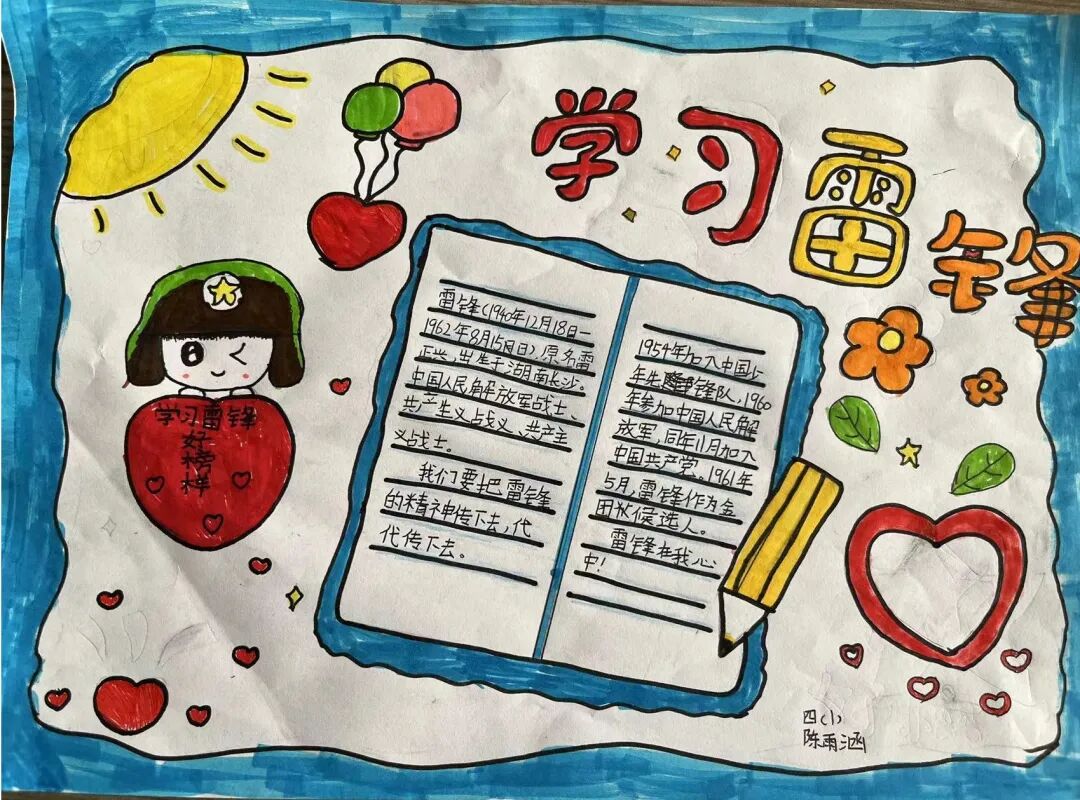 学习雷锋
学习雷锋
好
榜
样
雷锋(1940年12月18日—
1962年8月15日),原名雷
正兴,出生于湖南长沙。
中国人民解放军战士、
共产主义战义、共产主
义战士。
我们要把雷锋
的精神传下去,代
代传下去。
1954年加入中国少
年先锋队,1960
年参加中国人民解
放军,同年11月加入
中国共产党。1961年
5月,雷锋作为金
候选人。
雷锋在我心
中!
四(1)
陈雨涵